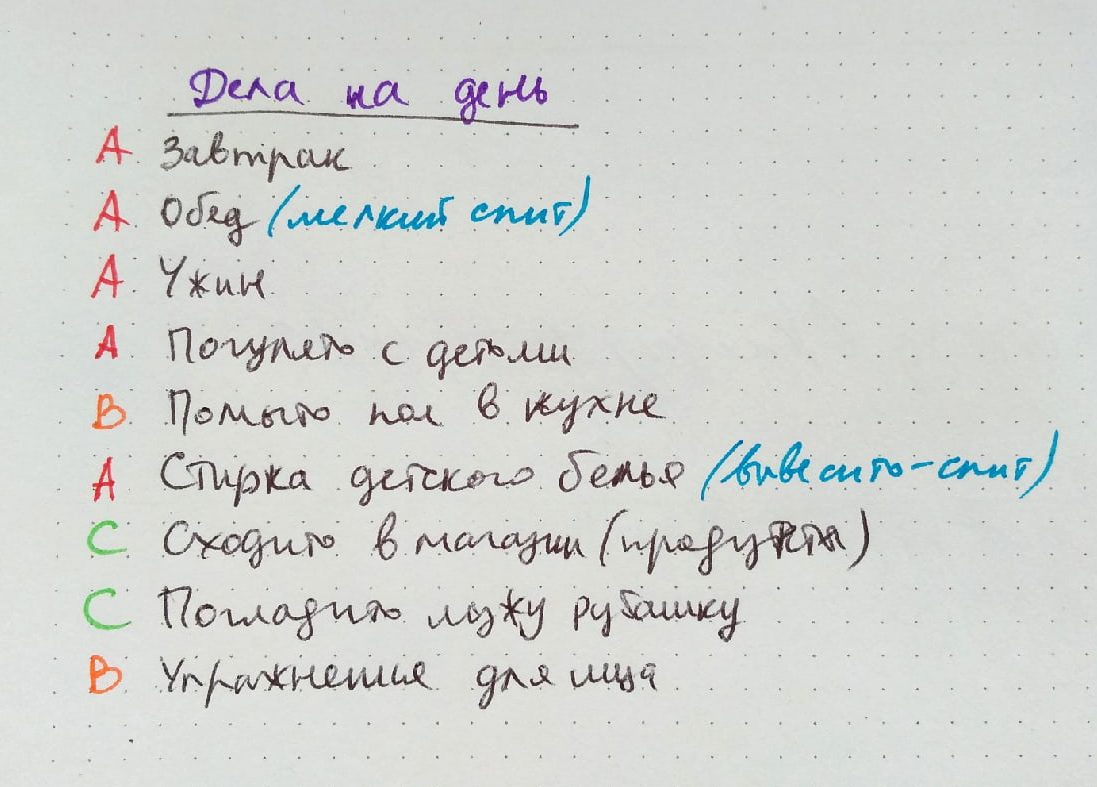 Дела на день
А Завтрак
А Обед (мелкий спит)
А Ужин
А Погулять с детьми
В Помыть пол в кухне
А Стирка детского белья (вывесить-спит)
С Сходить в магазин (продукты)
С Погладить мужу рубашку
В Упражнения для лица